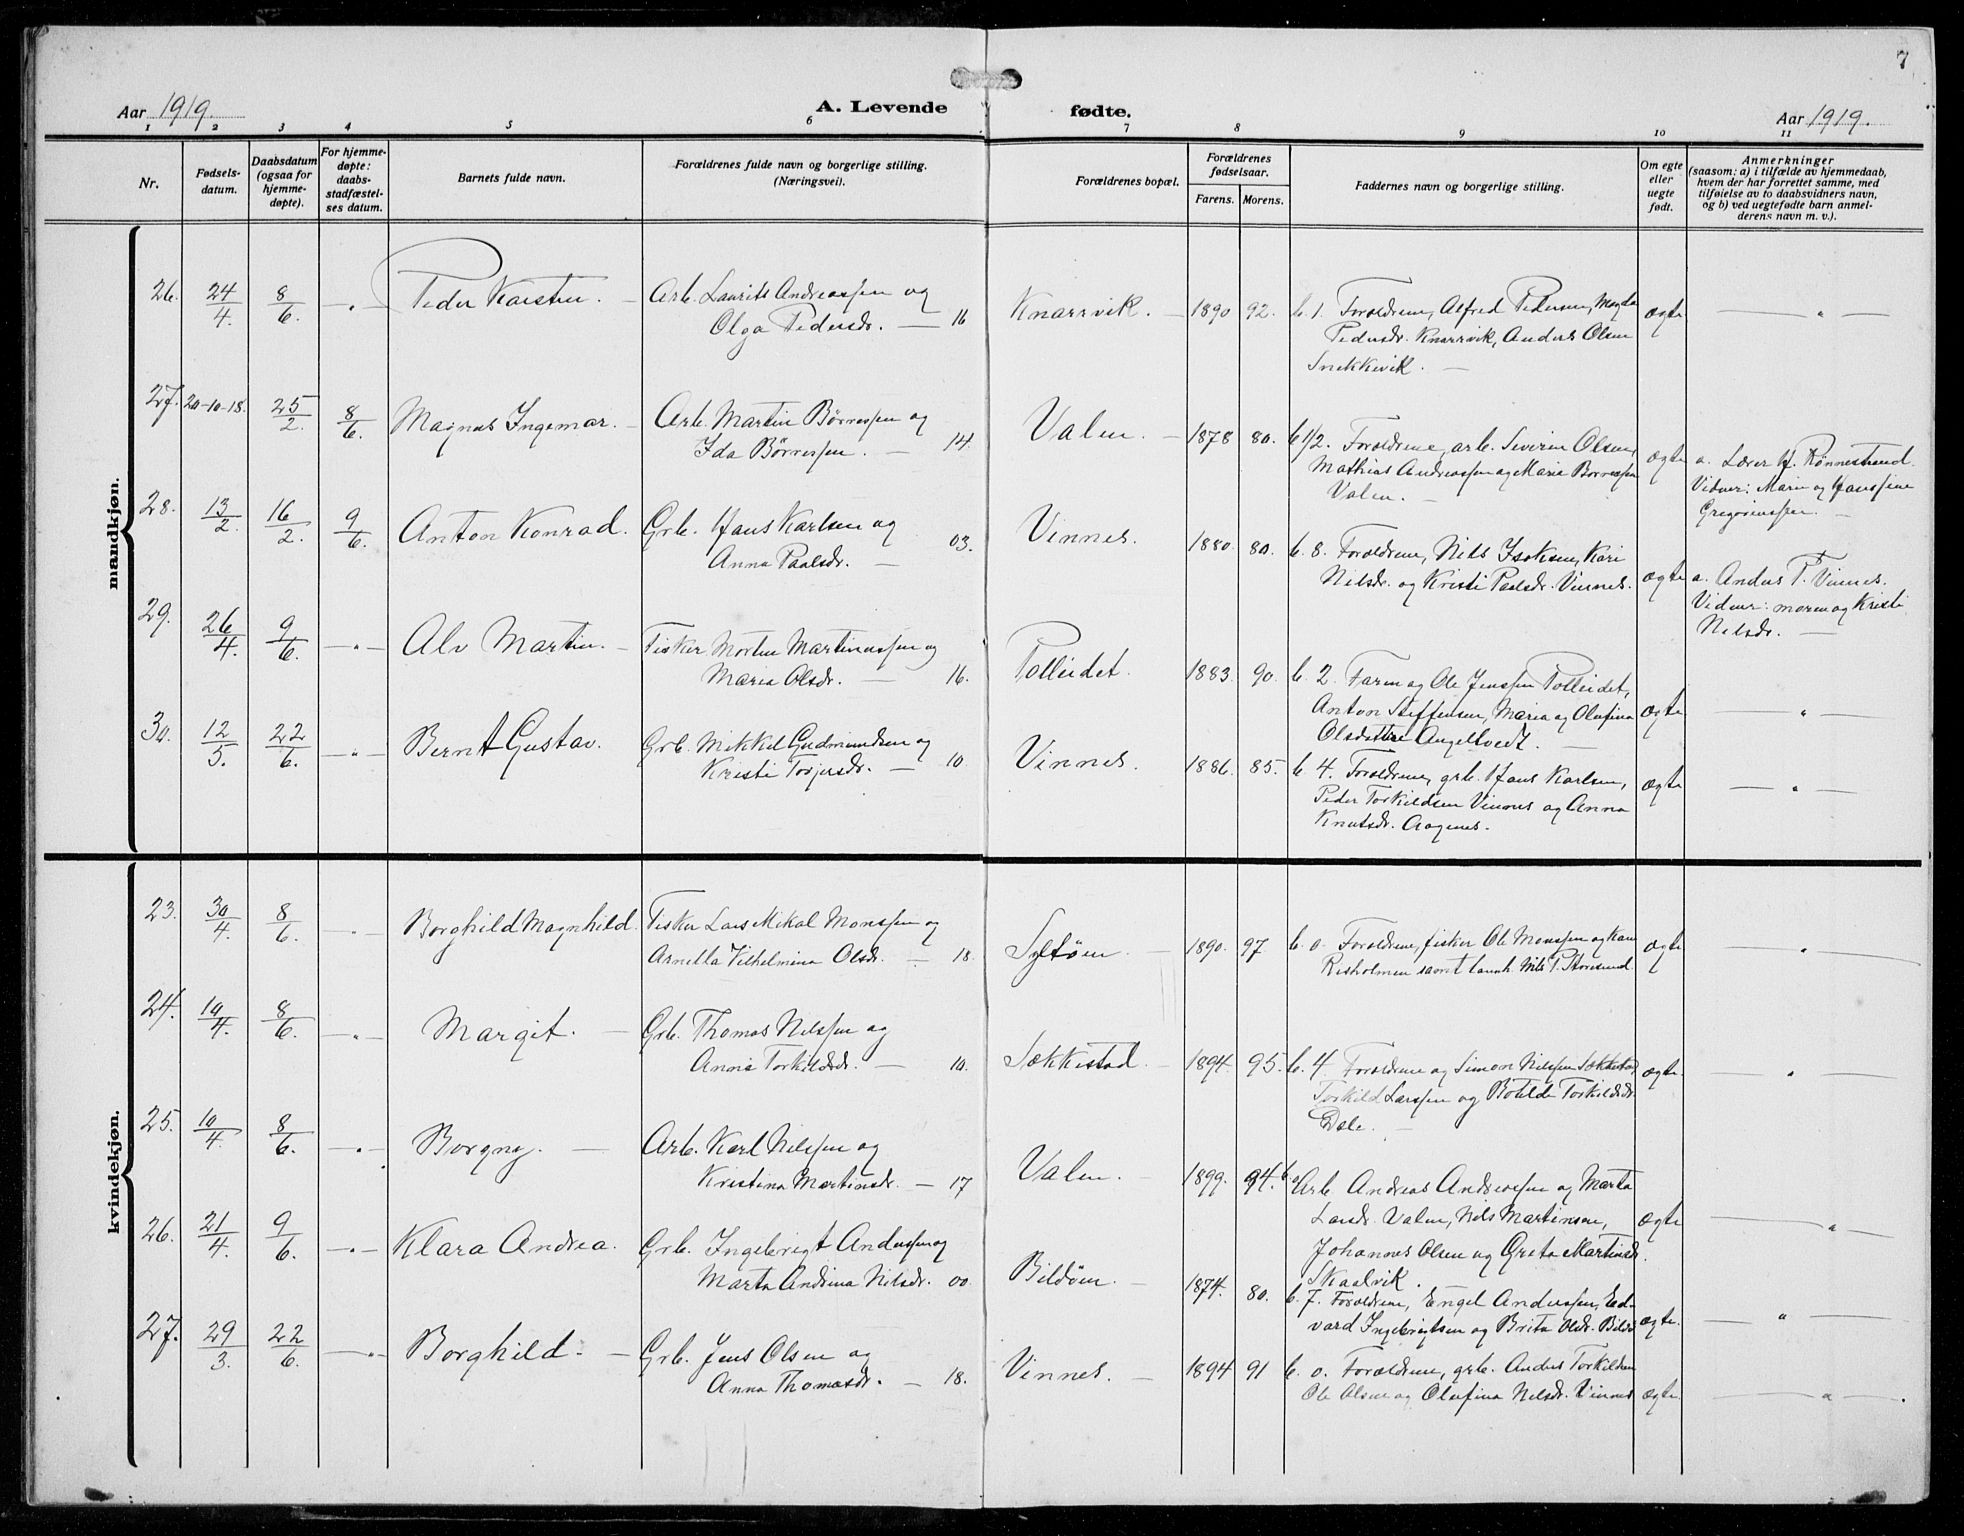 7
Aar 1919.
A. Levende fødte.
Aar 1919.
1 2 3 4 5 6 7 8 9 10 11
Nr.
Fødsels-
datum.
Daabsdatum
(ogsaa for
hjemme-
døpte).
For hjemme-
døpte:
daabs-
stadfæstel-
ses datum.
Barnets fulde navn.
Forældrenes fulde navn og borgerlige stilling.
(Næringsvei).
Forældrenes bopæl.
Forældrenes
fødselsaar.
Farens. Morens.
Faddernes navn og borgerlige stilling.
Om egte
eller
uegte
født.
Anmerkninger
(saasom: a) i tilfælde av hjemmedaab,
hvem der har forrettet samme, med
tilføielse av to daabsvidners navn,
og b) ved uegtefødte barn anmel-
derens navn m. v.).
mandkjøn.
26. 24/4. 8/6. — " — Peder Karsten. — Arb. Laurits Andreassen og
Olga Pedersdr. — 16
Knarrvik. — 1890 92. b. 1. Forældrene, Alfred Pedersen, Magda
Pedersdr. Knarrvik, Anders Olsen
Snekkevik. —
ægte — " —
27. 20-10-18. 25/2. 8/6. Magnus Ingemar. — Arb. Martin Børressen og
Ida Børressen. — 14.
Valen. — 1878 80. b 1/2. Forældrene, arb. Severin Olsen,
Mathias Andreassen og Marie Børressen
Valen. —
ægte a. Lærer H. Rønnestrand.
Vidner: Marie og Hanssine
Gregoriussen. —
28. 13/2. 16/2. 9/6. Anton Konrad. Grb. Hans Karlsen og
Anna Paalsdr. — 03.
Vinnes. 1880. 80. b. 8. Forældrene, Nils Isaksen, Kari
Nilsdr. og Kristi Paalsdr. Vinnes.
ægte a. Anders T. Vinnes.
Vidner: moren og Kristi
Nilsdr. —
29. 26/4. 9/6. — " — Alv Martin. — Fisker Morten Martinussen og
Maria Olsdr. — 16.
Polleidet. 1883. 90. b. 2. Faren og Ole Jenssen Polleidet,
Anton Steffensen, Maria og Olufina
Olsdøttre Angeltvedt. —
ægte. — " —
30. 12/5. 22/6. — " — Bernt Gustav. Grb. Mikkel Gudmundsen og
Kristi Torjersdr. — 10.
Vinnes. 1886. 85. b. 4. Forældrene, grb. Hans Karlsen,
Peder Torkildsen Vinnes og Anna
Knutsdr. Aagenes.
ægte — " —
kvindekjøn.
23. 30/4. 8/6. — " — Borghild Magnhild. Fisker Lars Mikal Monssen og
Arnetta Vilhelmina Olsdr. — 18.
— 1890. 97 b. 0. Forældrene, fisker Ole Monssen og Kari
Risholmen samt Nils P. Storesund.
ægte "
24. 10/4. 8/6. — " — Margit. — Grb. Thomas Nilssen og
Anna Torkildsdr. — 10.
Sækkestad. — 1894. 95. b. 4. Forældrene og Simon Nilssen Sækkestad
Torkild Larssen og Botilde Torkildsdr.
Dale. —
ægte. — " —
25. 10/4. 8/6. — " — Borgny. — Arb. Karl Nilssen og
Kristina Martinsdr. — 17
Valen. — 1899. 94. b. 0 Arb. Andreas Andreassen og Marta
Larsdr. Valen, Nils Martinsen,
Johannes Olsen og Greta Martinsdr.
Skaalvik.
ægte — " —
26. 21/4. 9/6. — " — Klara Andrea. Grb. Ingebrigt Anderssen og
Marta Andrina Nilsdr. 00.
Bildøen. — 1874. 80. b. 7. Forældrene, Engel Anderssen, Ed-
vard Ingebrigtsen og Brita Olsdr. Bildø
ægte. — " —
27. 29/3. 22/6. — " — Borghild. — Grb. Jens Olsen og
Anna Thomasdr. — 18.
Vinnes. — 1894 91 b. 0. Forældrene, grb. Anders Torkildsen
Ole Olsen og Olufina Nilsdr. Vinnes
ægte. — " —